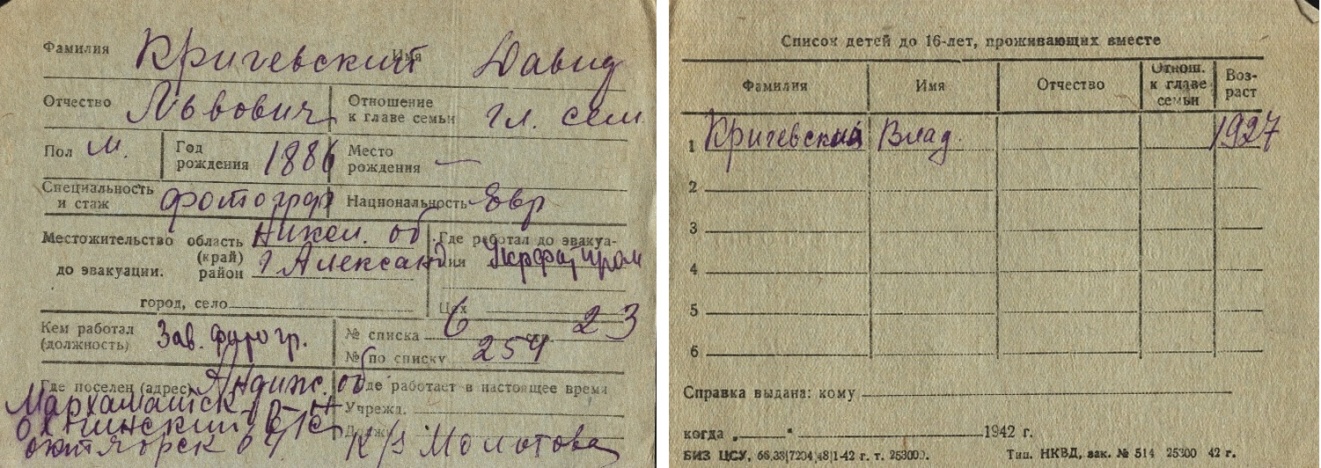 Фамилия Кричевский Имя Давид
Отчество Львович Отношение к главе семьи гл. сем.
Пол м. Год рождения 1886 Место рождения —
Специальность и стаж фотограф Национальность евр
Местожительство область Никол. об. Где работал до эвакуа-
(край) г Александ ция
до эвакуации. район
город, село Цех
Кем работал Зав. № списка 6 23
(должность) № по списку 254
Где поселен (адрес) Андиж. об Где работает в настоящее время
Мархаматск Учрежд.
октябрьск Должн. к/з Молотова
Список детей до 16-лет, проживающих вместе
Фамилия Имя Отчество Отнош. к главе семьи Воз-раст
1 Кричевский Влад. 1927
2
3
4
5
6
Справка выдана: кому
когда „ “ 1942 г.
БИЗ ЦСУ, 66,33|7204|48|1-42 г. т. 25300. Тип. НКВД, зак. № 514 25300 42 г.